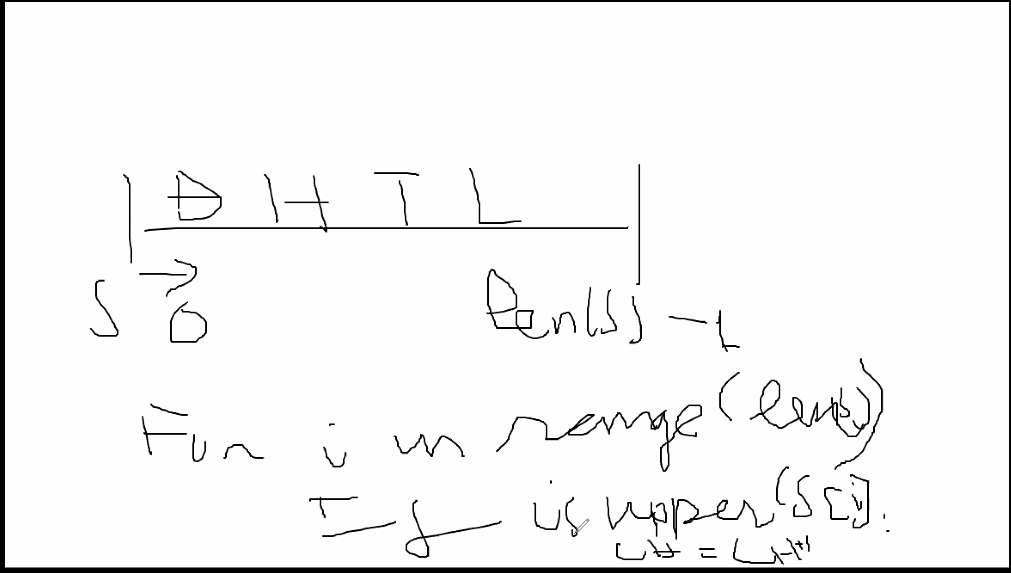 ĐHTL
S → 0 len(S) - 1
For i in range(len(s))
If isupper(S[i]:
CH = CH+1